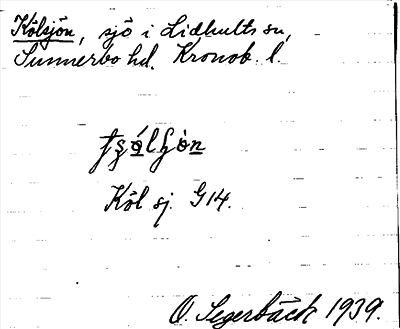 Kölsjön, sjö i Lidhults sn,
Sunnerbo hd. Kronob. l.
Köl sj. G14.
O. Segerbäck 1939.